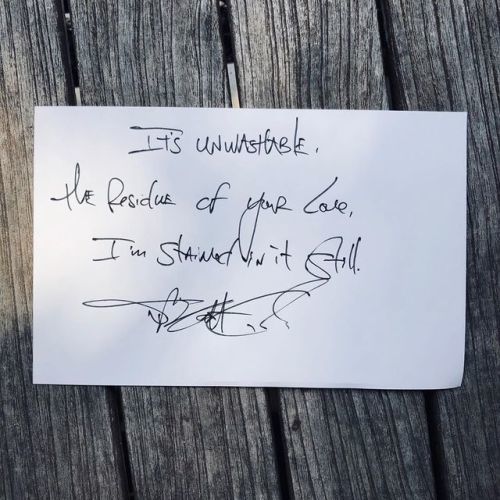 It's unwashable.
the residue of your love,
I'm stained in it still.